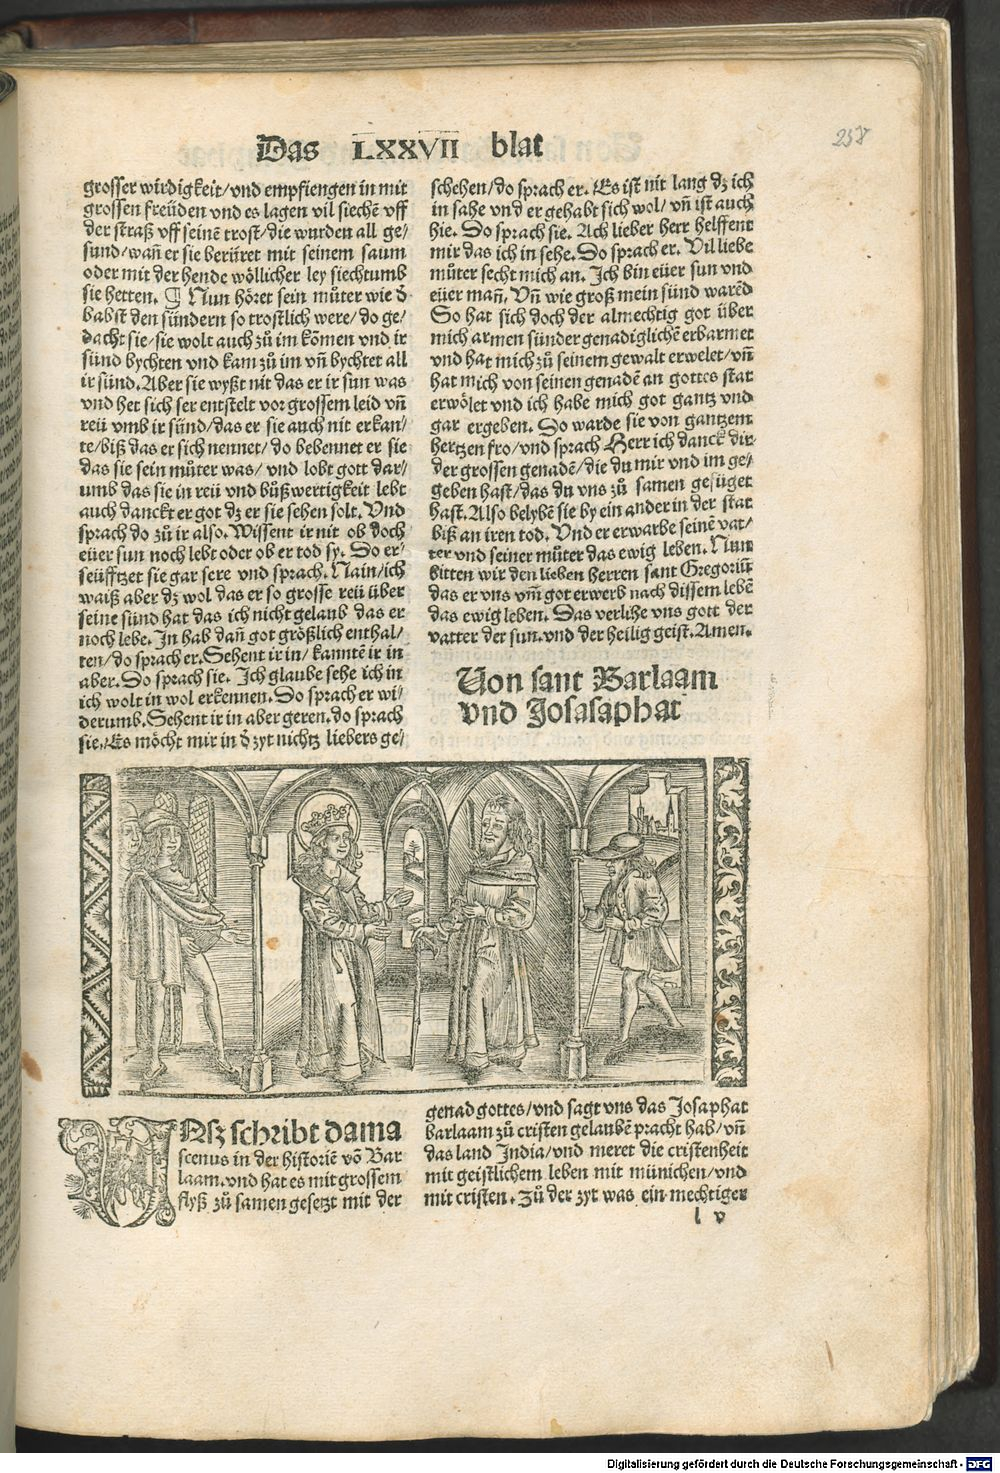 Das LXXVII blat
258
grosser wirdigkeit/vnd empfiengen in mit
grossen freüden vnd es lagen vil siechē vff
der straß vff seinē trost/die wurden all ge/
sund/wañ er sie berüret mit seinem saum
oder mit der hende wöllicher ley siechtumb
sie hetten. ¶ Nun höret sein můter wie d̄
babst den sündern so trostlich were/do ge/
dacht sie/sie wolt auch zů im kōmen vnd ir
sünd bychten vnd kam zů im vñ bychtet all
ir sünd. Aber sie wyßt nit das er ir sun was
vnd het sich ser entstelt vor grossem leid vñ
reü vmb ir sünd/das er sie auch nit erkan/
te/biß das er sich nennet/do bebennet er sie
das sie sein můter was/ vnd lobt gott dar/
umb das sie in reü vnd bůßwertigkeit lebt
auch danckt er got dz er sie sehen solt. Vnd
sprach do zů ir also. Wissent ir nit ob doch
eüer sun noch lebt oder ob er tod sy. So er/
seüfftzet sie gar sere vnd sprach. Nain/ich
waiß aber dz wol das er so grosse reü über
seine sünd hat das ich nicht gelaub das er
noch lebe. In hab dañ got größlich enthal/
ten/do sprach er. Sehent ir in/kanntē ir in
aber. Do sprach sie. Ich glaube sehe ich in
ich wolt in wol erkennen. Do sprach er wi/
derumb. Sehent ir in aber geren. do sprach
sie. Es möcht mir in d̄ zyt nichtz liebers ge/
schehen/do sprach er. Es ist nit lang dz ich
in sahe vnd er gehabt sich wol/vñ ist auch
hie. Do sprach sie. Ach lieber herr helffent
mir das ich in sehe. Do sprach er. Vil liebe
můter secht mich an. Ich bin eüer sun vnd
eüer mañ. Vñ wie groß mein sünd warēd
So hat sich doch der almechtig got über
mich armen sünder genadiglichē erbarmet
vnd hat mich zů seinem gewalt erwelet/vñ
hat mich von seinen genadē an gottes stat
erwölet vnd ich habe mich got gantz vnd
gar ergeben. Do warde sie von gantzem
hertzen fro/vnd sprach Herr ich danck dir
der grossen genadē/die du mir vnd im ge/
geben hast/das du vns zů samen gefüget
hast. Also belybē sie by ein ander in der stat
biß an iren tod. Vnd er erwarbe seinē vat/
ter vnd seiner můter das ewig leben. Nun
bitten wir den lieben herren sant Gregoriū
das er vns vm̄ got erwerb nach dissem lebē
das ewig leben. Das verlihe vns gott der
vatter der sun. vnd der heilig geist. Amen.
Von sant Barlaam
vnd Josasaphat
VNsz schribt dama
scenus in der historiē vō Bar
laam. vnd hat es mit grossem
flyß zů samen gesetzt mit der
genad gottes/vnd sagt vns das Josaphat
barlaam zů cristen gelaubē pracht hab/vñ
das land India/vnd meret die cristenheit
mit geistlichem leben mit münichen/vnd
mit cristen. Zů der zyt was ein mechtiger
l v
Digitalisierung gefördert durch die Deutsche Forschungsgemeinschaft - DFG